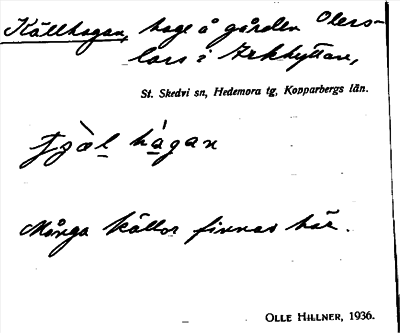 Källhagan, hage å gården Olers-
lars i Arkhyttan,
St. Skedvi sn, Hedemora tg, Kopparbergs län.
hàgan
Många källor finnas här.
OLLE HILLNER, 1936.